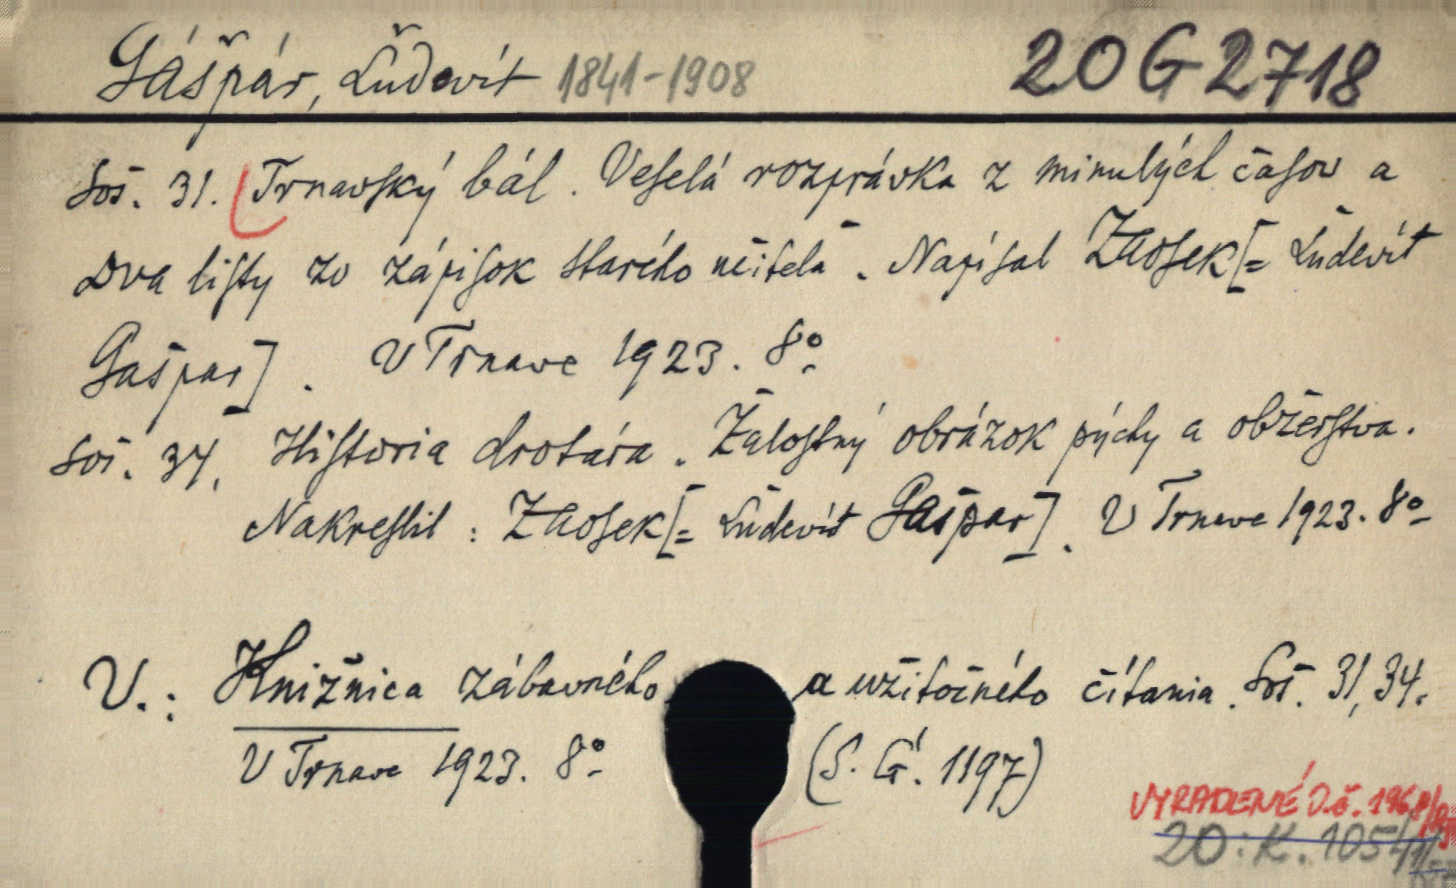 Gašpár, Ľudovít 1841-1908 20 G 2718
Soš. 31. Trnavský bál. Veselá rozprávka z minulých časov a
Dva listy zo zápisok starého učiteľa. Napísal Zaosek [= Ľudevít
Gašpar]. V Trnave 1923. 8º.
Soš. 34. Historia drotára. Žalostný obrázok pýchy a obžerstva.
Nakreslil: Zaosek [= Ľudevít Gašpar]. V Trnave 1923. 8º
V.: Knižnica zábavného a užitočného čítania. Soš. 31, 34.
V Trnave 1923. 8º (S. G. 1197)
VYRADENÉ D.č. 1968/
20:K.1054/